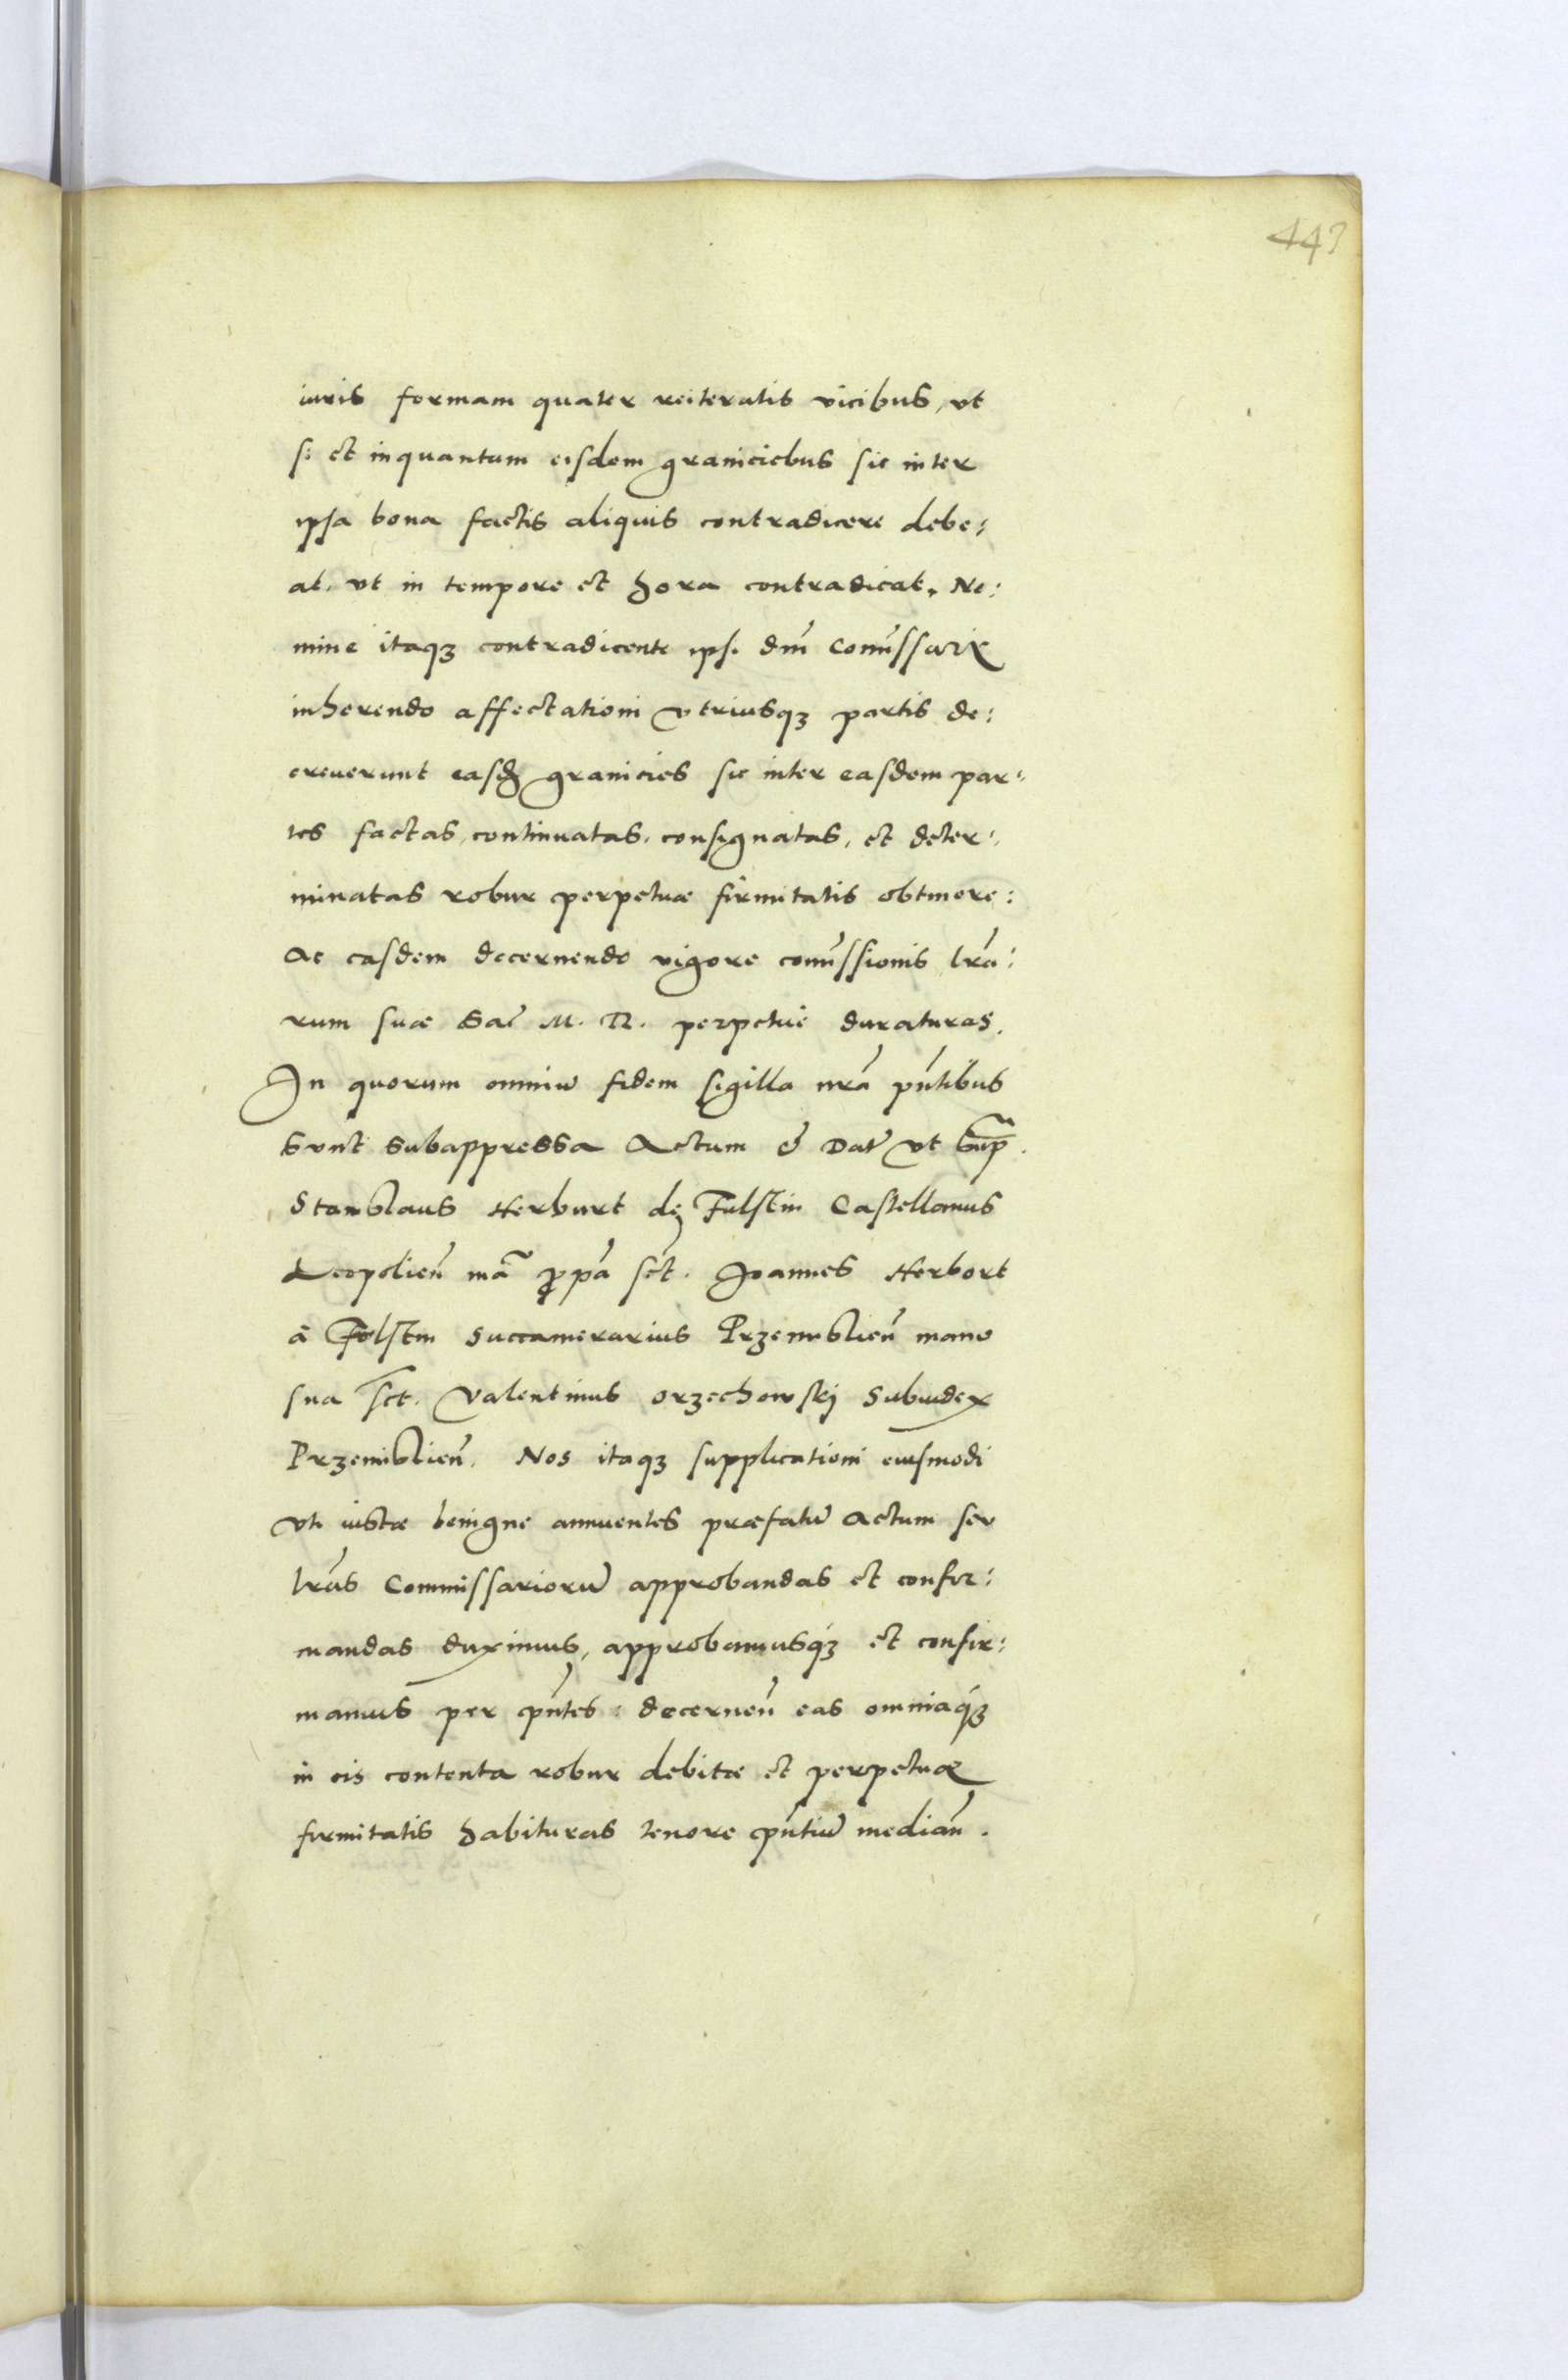 443
iuris formam quater reiteratis vicibus, vt
si et inquantum eisdem graniciebus sic inter
ipsa bona factis aliquis contradicere debe:
at. vt in tempore et hora contradicat. Ne:
mine itaqȝ contradicente ipsi dni͂ Com̃issarij
inherendo affectationi vtriusqȝ partis de:
creuerunt easdȝ granicies sic inter easdem par:
tes factas, continuatas, consignatas, et deter:
minatas robur perpetuæ firmitatis obtinere:
Ac easdem decernendo vigore com̃issionis lrã:
rum suæ Sac̃ M. R. perpetuè duraturas.
In quorum omniũ fidem sigilla nrã pñtibus
sunt subappressa Actum & Dat̃ vt sup̃.
Stanislaus Herburt de Fulstin Castellanus
Leopolien̄ mã ꝓpã sct̃. Joannes Herbort
à Folstin Succamerarius Przemislien̄ manu
sua sct̃. Valentinus Orzechowskj Subiudex
Przemislien̄. Nos itaqȝ supplicationi eiusmodi
vti iustæ benigne annuentes præfatũ Actum seu
lrãs Commissariorũ approbandas et confir:
mandas duximus, approbamusqȝ et confir:
mamus per pñtes: decernen̄ eas omniaqȝ
in eis contenta robur debitæ et perpetuæ
firmitatis habituras tenore pñtiũ median̄.